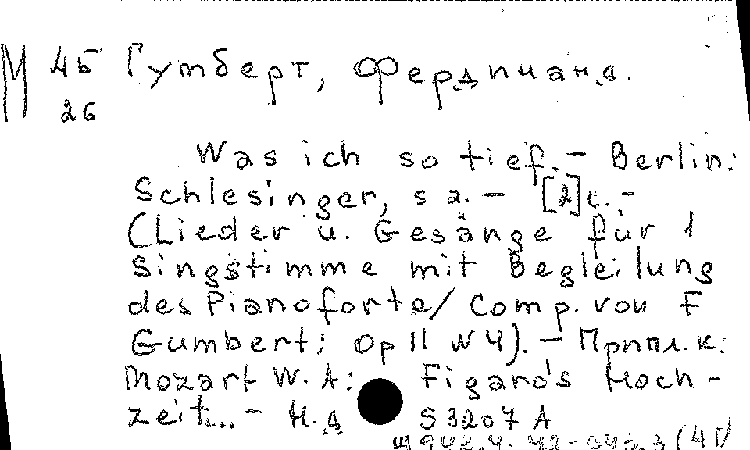 М 45 Гумберт, Фердинанд.
26
Was ich so tief. – Berlin:
Schlesinger, s a. – [2] с. –
(Lieder u. Gesänge für 1
Singstimme mit Begleitung
des Pianoforte / Comp. von F
Gumbert; Op 11 N 4). – Припл. к:
Mozart W. A: Figaro's Hoch-
zeit... – Н.д S 3207 A